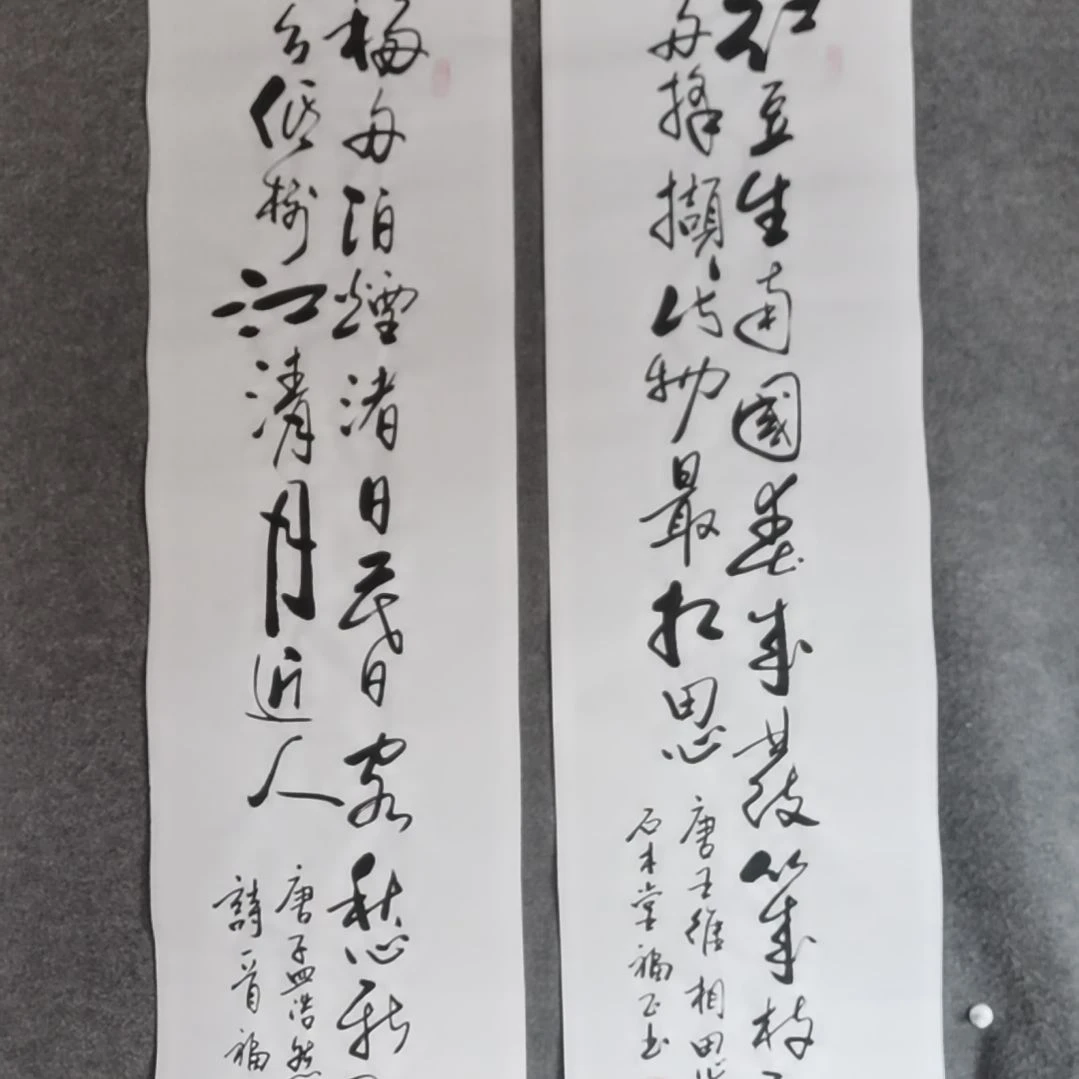 红豆生南國春来發幾枝
採擷此物最相思
唐王維相思
石木堂福正書
移舟泊煙渚日暮客愁新
低樹江清月近人
唐孟浩然
詩一首福